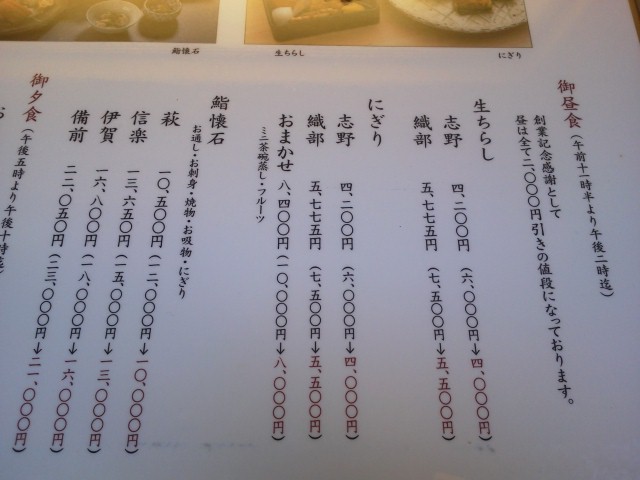 鮨懐石
生ちらし
にぎり
御昼食（午前十一時半より午後二時迄）
創業記念感謝として
昼は全て二、〇〇〇円引きの値段になっております。
生ちらし
志野 四、二〇〇円（六、〇〇〇円→四、〇〇〇円）
織部 五、七七五円（七、五〇〇円→五、五〇〇円）
にぎり
志野 四、二〇〇円（六、〇〇〇円→四、〇〇〇円）
織部 五、七七五円（七、五〇〇円→五、五〇〇円）
おまかせ 八、四〇〇円（一〇、〇〇〇円→八、〇〇〇円）
ミニ茶碗蒸し・フルーツ
鮨懐石
お通し・お刺身・焼物・お吸物・にぎり
萩 一〇、五〇〇円（一二、〇〇〇円→一〇、〇〇〇円）
信楽 一三、六五〇円（一五、〇〇〇円→一三、〇〇〇円）
伊賀 一六、八〇〇円（一八、〇〇〇円→一六、〇〇〇円）
備前 二二、〇五〇円（二三、〇〇〇円→二一、〇〇〇円）
御夕食（午後五時より午後十時迄）